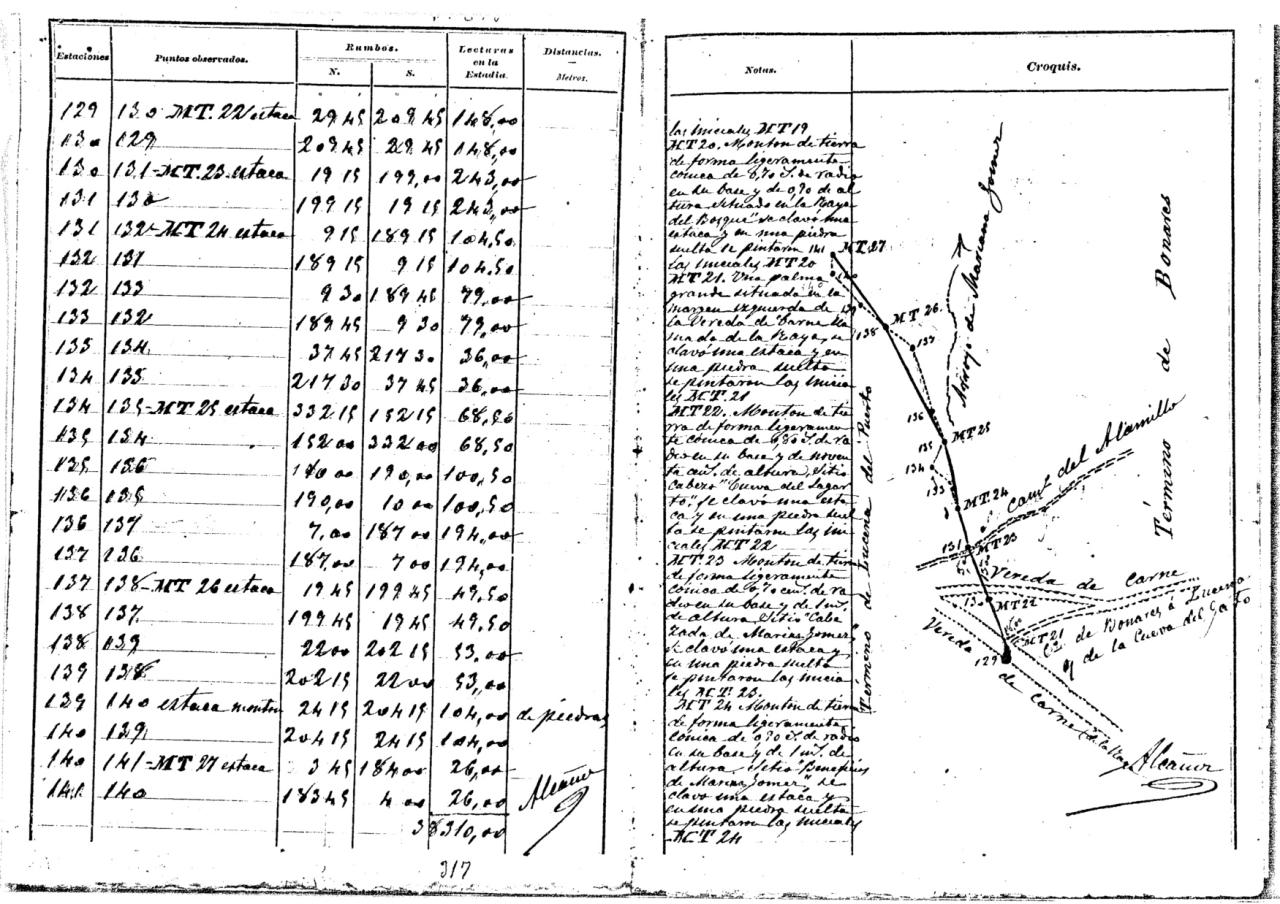 Estaciones Puntos observados. Rumbos. N. S. Lecturas en la Estadia. Distancias. Metros.
129 130-MT. 22 estaca 29 45 209 45 148,00
130 129 209 45 29 45 148,00
130 131-MT. 23 estaca 19 15 199,00 243,00
131 130 199 15 19 15 243,00
131 132-MT 24 estaca 9 15 189 15 104,50
132 131 189 15 9 15 104,50
132 133 9 30 189 45 79,00
133 132 189 45 9 30 79,00
133 134 37 45 217 30 36,00
134 133 217 30 37 45 36,00
134 135-MT 25 estaca 332 15 152 15 68,50
135 134 152 00 332 00 68,50
135 136 10 00 190,00 100,50
136 135 190,00 10 00 100,50
136 137 7,00 187 00 194,00
137 136 187,00 7 00 194,00
137 138-MT 26 estaca 19 45 199 45 49,50
138 137 199 45 19 45 49,50
138 139 22 00 202 15 53,00
139 138 202 15 22 00 53,00
139 140 estaca monton 24 15 204 15 104,00 de piedras
140 139 204 15 24 15 104,00
140 141-MT 27 estaca 3 45 184 00 26,00
141 140 183 45 4 00 26,00
310,00
Alcañiz
317
Notas. Croquis.
las iniciales MT 19
MT 20. Monton de tierra
de forma ligeramente
cónica de 0,70 de radio
en su base y de 0,90 de al
tura situado en la Raya
del Bosque" se clavó una
estaca y en una piedra
suelta se pintaron
las iniciales MT 20
MT 21. Una palma
grande situada en la
margen izquierda de
la Vereda de Carne lla
mada de la Raya, se
clavó una estaca y en
una piedra suelta
se pintaron las inicia
les MT 21
MT 22. Monton de tie
rra de forma ligeramen
te cónica de 0,80 de ra
dio en su base y de noven
ta de altura, Sitio
Cabezo "Cueva del Lagar
to", se clavó una esta
ca y en una piedra suel
ta se pintaron las ini
ciales MT 22
MT. 23 Monton de tierra
de forma ligeramente
cónica de 0,70 de ra
dio en su base y de 1
de altura Sitio "Cabe
zada de Marias Gomez
se clavó una estaca y
en una piedra suelta
se pintaron las inicia
les MT. 23.
MT 24 Monton de tierra
de forma ligeramente
cónica de 0,70 de radio
en su base y de 1 de
altura, Sitio
de Marias Gomez" se
clavó una estaca y
en una piedra suelta
se pintaron las iniciales
MT 24
141
MT. 27
140
139
138
MT 26.
137
136
135
MT 25
134
133
MT. 24
131
MT 23
130
MT 22
MT 21
129
Arroyo de Mariana Gomez
Término de Bonares
Termino de Lucena del Puerto
Camº del Alamillo
Vereda de Carne
Cº de Bonares á Lucena
y de la Cueva del Gato
Vereda de Carne
Alcañiz